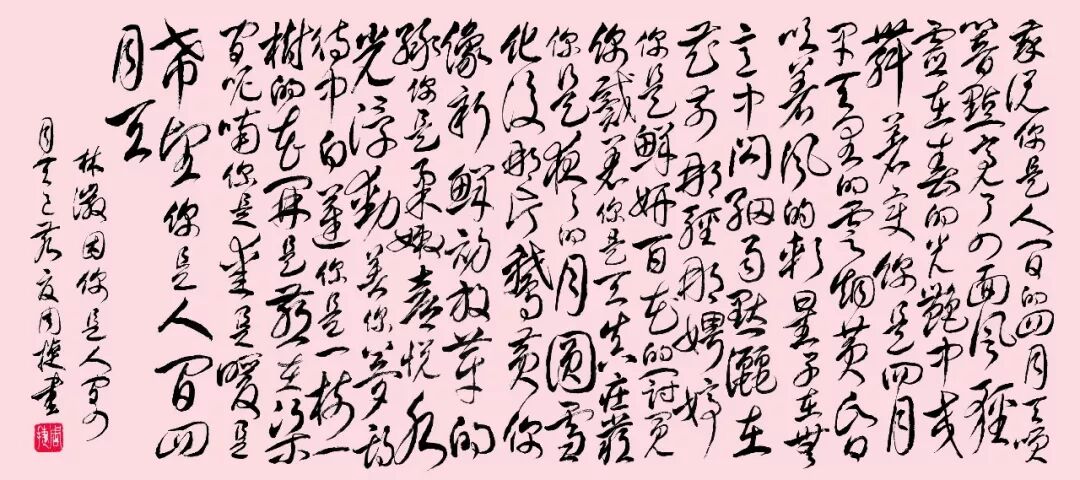 我说你是人间的四月天笑
响點亮了四面风轻
灵在春的光艷中交
舞着变你是四月
早天里的云烟黄昏
吹着风的软星子在無
意中闪細雨點灑在
花前那轻那娉婷
你是鮮妍百花的冠冕
你戴着你是天真庄嚴
你是夜夜的月圓雪
化後那片鵝黄你
像新鮮初放芽的
绿你是柔嫩喜悦水
光浮動着你梦期
待中白莲你是一树一
樹的花开是燕在梁
间呢喃你是爱是暖是
希望你是人间四
月天
林徽因你是人间四
月天己亥夏周捷书